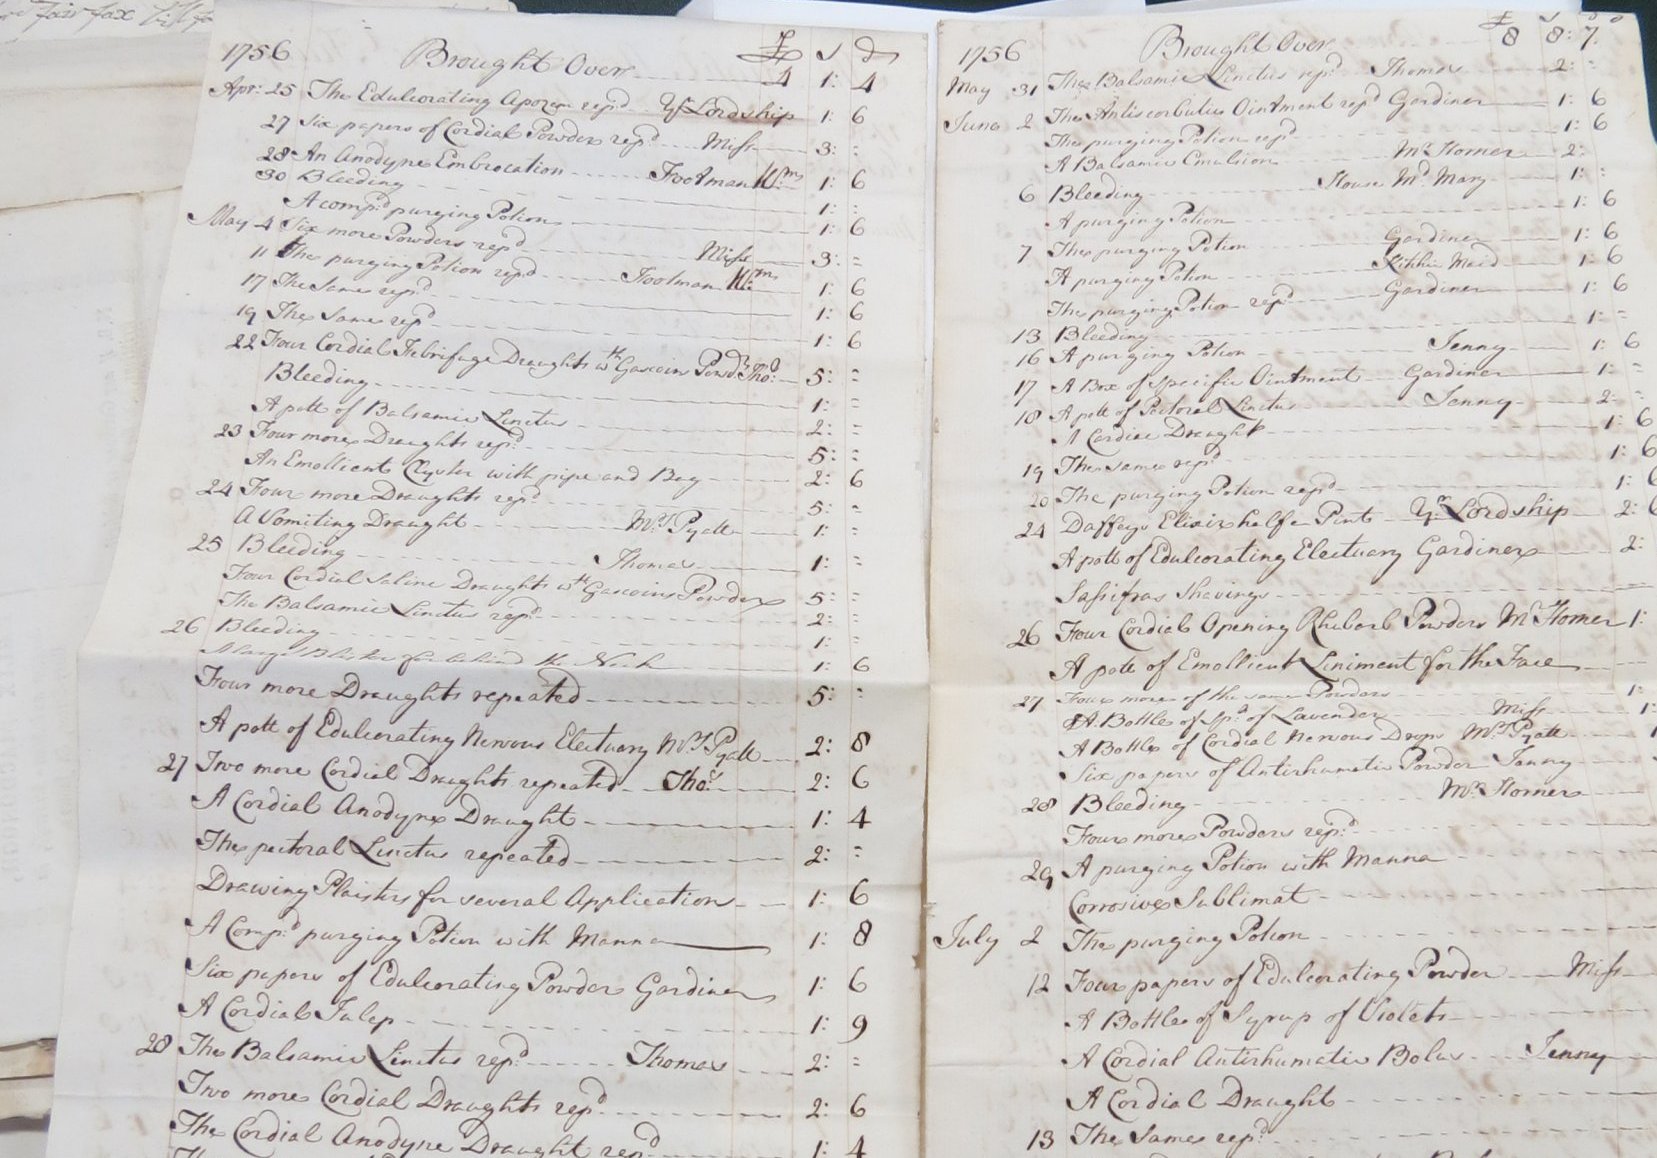 1756 Brought Over £ s d
4 1: 4
Apr: 25 The Edulcorating Apozem rep:d Yr Lordship 1: 6
27 Six papers of Cordial Powders rep:d Miss 3: =
28 An Anodyne Embrocation Footman Wm: 1: 6
30 Bleeding 1: =
A comp:d purging Potion 1: 6
May 4 Six more Powders rep:d Miss 3: =
11 The purging Potion rep:d Footman Wm: 1: 6
17 The Same rep:d 1: 6
19 The Same rep:d 1: 6
22 Four Cordial Febrifuge Draughts wth Gascoin Powdr Tho:s 5: =
Bleeding 1: =
A pott of Balsamic Linctus 2: =
23 Four more Draughts rep:d 5: =
An Emollient Clyster with pipe and Bag 2: 6
24 Four more Draughts rep:d 5: =
A Vomiting Draught Mrs Pyatt 1: =
25 Bleeding Thomas 1: =
Four Cordial Saline Draughts wth Gascoins Powder 5: =
The Balsamic Linctus rep:d 2: =
26 Bleeding 1: =
A large Blister for behind the Neck 1: 6
Four more Draughts repeated 5: =
A pott of Edulcorating Nervous Electuary Mrs Pyatt 2: 8
27 Two more Cordial Draughts repeated Tho:s 2: 6
A Cordial Anodyne Draught 1: 4
The pectoral Linctus repeated 2: =
Drawing Plaisters for several Application 1: 6
A Comp:d purging Potion with Manna 1: 8
Six papers of Edulcorating Powder Gardiner 1: 6
A Cordial Julep 1: 9
28 The Balsamic Linctus rep:d Thomas 2: =
Two more Cordial Draughts rep:d 2: 6
The Cordial Anodyne Draught rep:d 1: 4
1756 Brought Over £ s d
8 8: 7
May 31 The Balsamic Linctus rep:d Thomas 2: =
June 2 The Antiscorbutic Ointment rep:d Gardiner 1: 6
The purging Potion rep:d 1: 6
A Balsamic Emulsion Mr Homer 2:
6 Bleeding House Md Mary 1: =
A purging Potion 1: 6
7 The purging Potion Gardiner 1: 6
A purging Potion Kitchn Maid 1: 6
The purging Potion rep:d Gardiner 1: 6
13 Bleeding 1: =
16 A purging Potion Jenny 1: 6
17 A Box of Specific Ointment Gardiner 1: =
18 A pott of Pectoral Linctus Jenny 2: =
A Cardiac Draught 1: 6
19 The same rep:d 1: 6
20 The purging Potion rep:d 1: 6
24 Daffeys Elixir halfe Pint Yr Lordship 2:
A pott of Edulcorating Electuary Gardiner 2:
Sassifras Shavings
26 Four Cordial Opening Rhubarb Powders Mr Homer 1:
A pott of Emollient Liniment for the Face
27 Four more of the same Powders 1:
A Bottle of Sp:t of Lavender Miss 1:
A Bottle of Cordial Nervous Drops Mrs Pyatt 1
Six papers of Antirhumatic Powder Jenny
28 Bleeding Mr Homer
Four more Powders rep:d
29 A purging Potion with Manna
Corrosive Sublimat
July 2 The purging Potion
12 Four papers of Edulcorating Powder Miss
A Bottle of Syrup of Violets
A Cordial Antirhumatic Bolus Jenny
A Cordial Draught
13 The Same rep:d